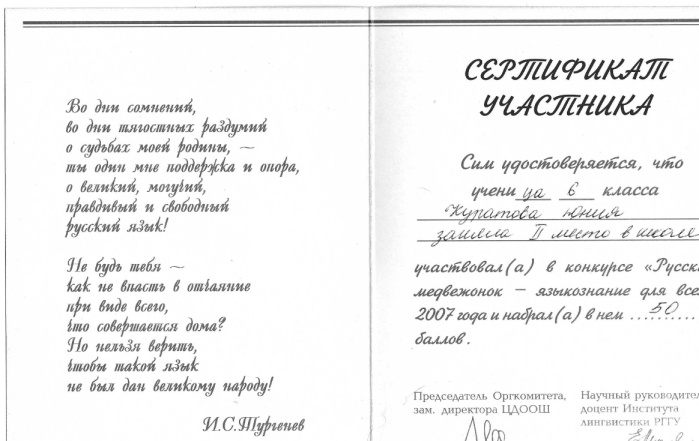 Во дни сомнений,
во дни тягостных раздумий
о судьбах моей родины, —
ты один мне поддержка и опора,
о великий, могучий,
правдивый и свободный
русский язык!
Не будь тебя —
как не впасть в отчаяние
при виде всего,
что совершается дома?
Но нельзя верить,
чтобы такой язык
не был дан великому народу!
И.С.Тургенев
СЕРТИФИКАТ
УЧАСТНИКА
Сим удостоверяется, что
учени ца 6 класса
Куратова Юния
заняла II место в школе
участвовал(а) в конкурсе «Русск
медвежонок — языкознание для все
2007 года и набрал(а) в нем ...50...
баллов.
Председатель Оргкомитета,
зам. директора ЦДООШ
Научный руководите
доцент Института
лингвистики РГГУ